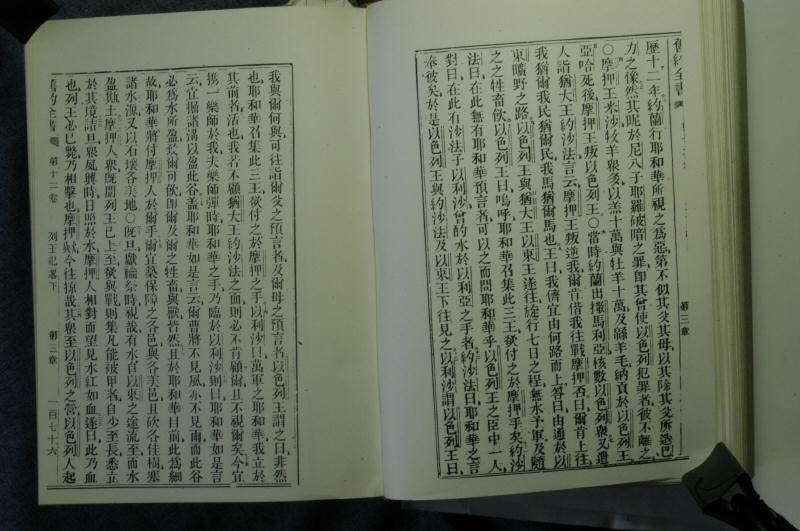 舊約全書
第三章
歷十二年約蘭行耶和華所視之為惡第不似其父其母以其除其父所造巴
力之像然其昵於尼八子耶羅破暗之罪即其曾使以色列犯罪者彼不離之
○摩押王米沙牧羊衆多以羔十萬與牡羊十萬及緜羊毛納貢於以色列王
亞哈死後摩押王叛以色列王○當時約蘭出撒馬利亞核數以色列衆又遣
人詣猶大王約沙法言云摩押王叛逆我爾肯偕我往戰摩押否曰爾肯上往
我猶爾我民猶爾民我馬猶爾馬也王曰我儕宜由何路而上答曰由通於以
東曠野之路以色列王與猶大王以東王遂往旋行七日之程無水予軍及隨
之之牲畜飲以色列王曰嗚呼耶和華召集此三王欲付之於摩押手矣約沙
法曰在此無有耶和華預言者可以之而問耶和華乎以色列王之臣中一人
對曰在此有沙法子以利沙曾酌水於以利亞之手者約沙法曰耶和華之言
奉彼矣於是以色列王與約沙法及以東王下往見之以利沙謂以色列王曰
我與爾何與可往詣爾父之預言者及爾母之預言者以色列王謂之曰非然
也耶和華召集此三王欲付之於摩押之手以利沙曰萬軍之耶和華我立於
其前者活也我若不顧猶大王約沙法之面則必不肯顧爾且不視爾矣今宜
攜一樂師於我夫樂師彈時耶和華之手乃臨於以利沙則曰耶和華如是言
云宜掘諸溝以盈此谷蓋耶和華如是言云爾曹將不見風亦不見雨而此谷
必為水所盈致爾可飲即爾及爾之牲畜與獸皆然且於耶和華目前此為細
故耶和華將付摩押人於爾手爾宜築保障之各邑與各美邑且砍各佳樹塞
諸水源又以石壞各美地○既旦獻禴祭時視哉有水自以東之途流至而水
盈斯土摩押人衆既聞列王上欲與戰則集凡能披甲者自少至長悉立
於其境詰旦衆夙興時日照於水摩押人相對而望見水紅如血遂曰此乃血
也列王必已斃乃相擊也摩押歟今往掠哉其衆至以色列之營以色列人起
舊約全書
第十二卷
列王紀畧下
第三章
一百七十六